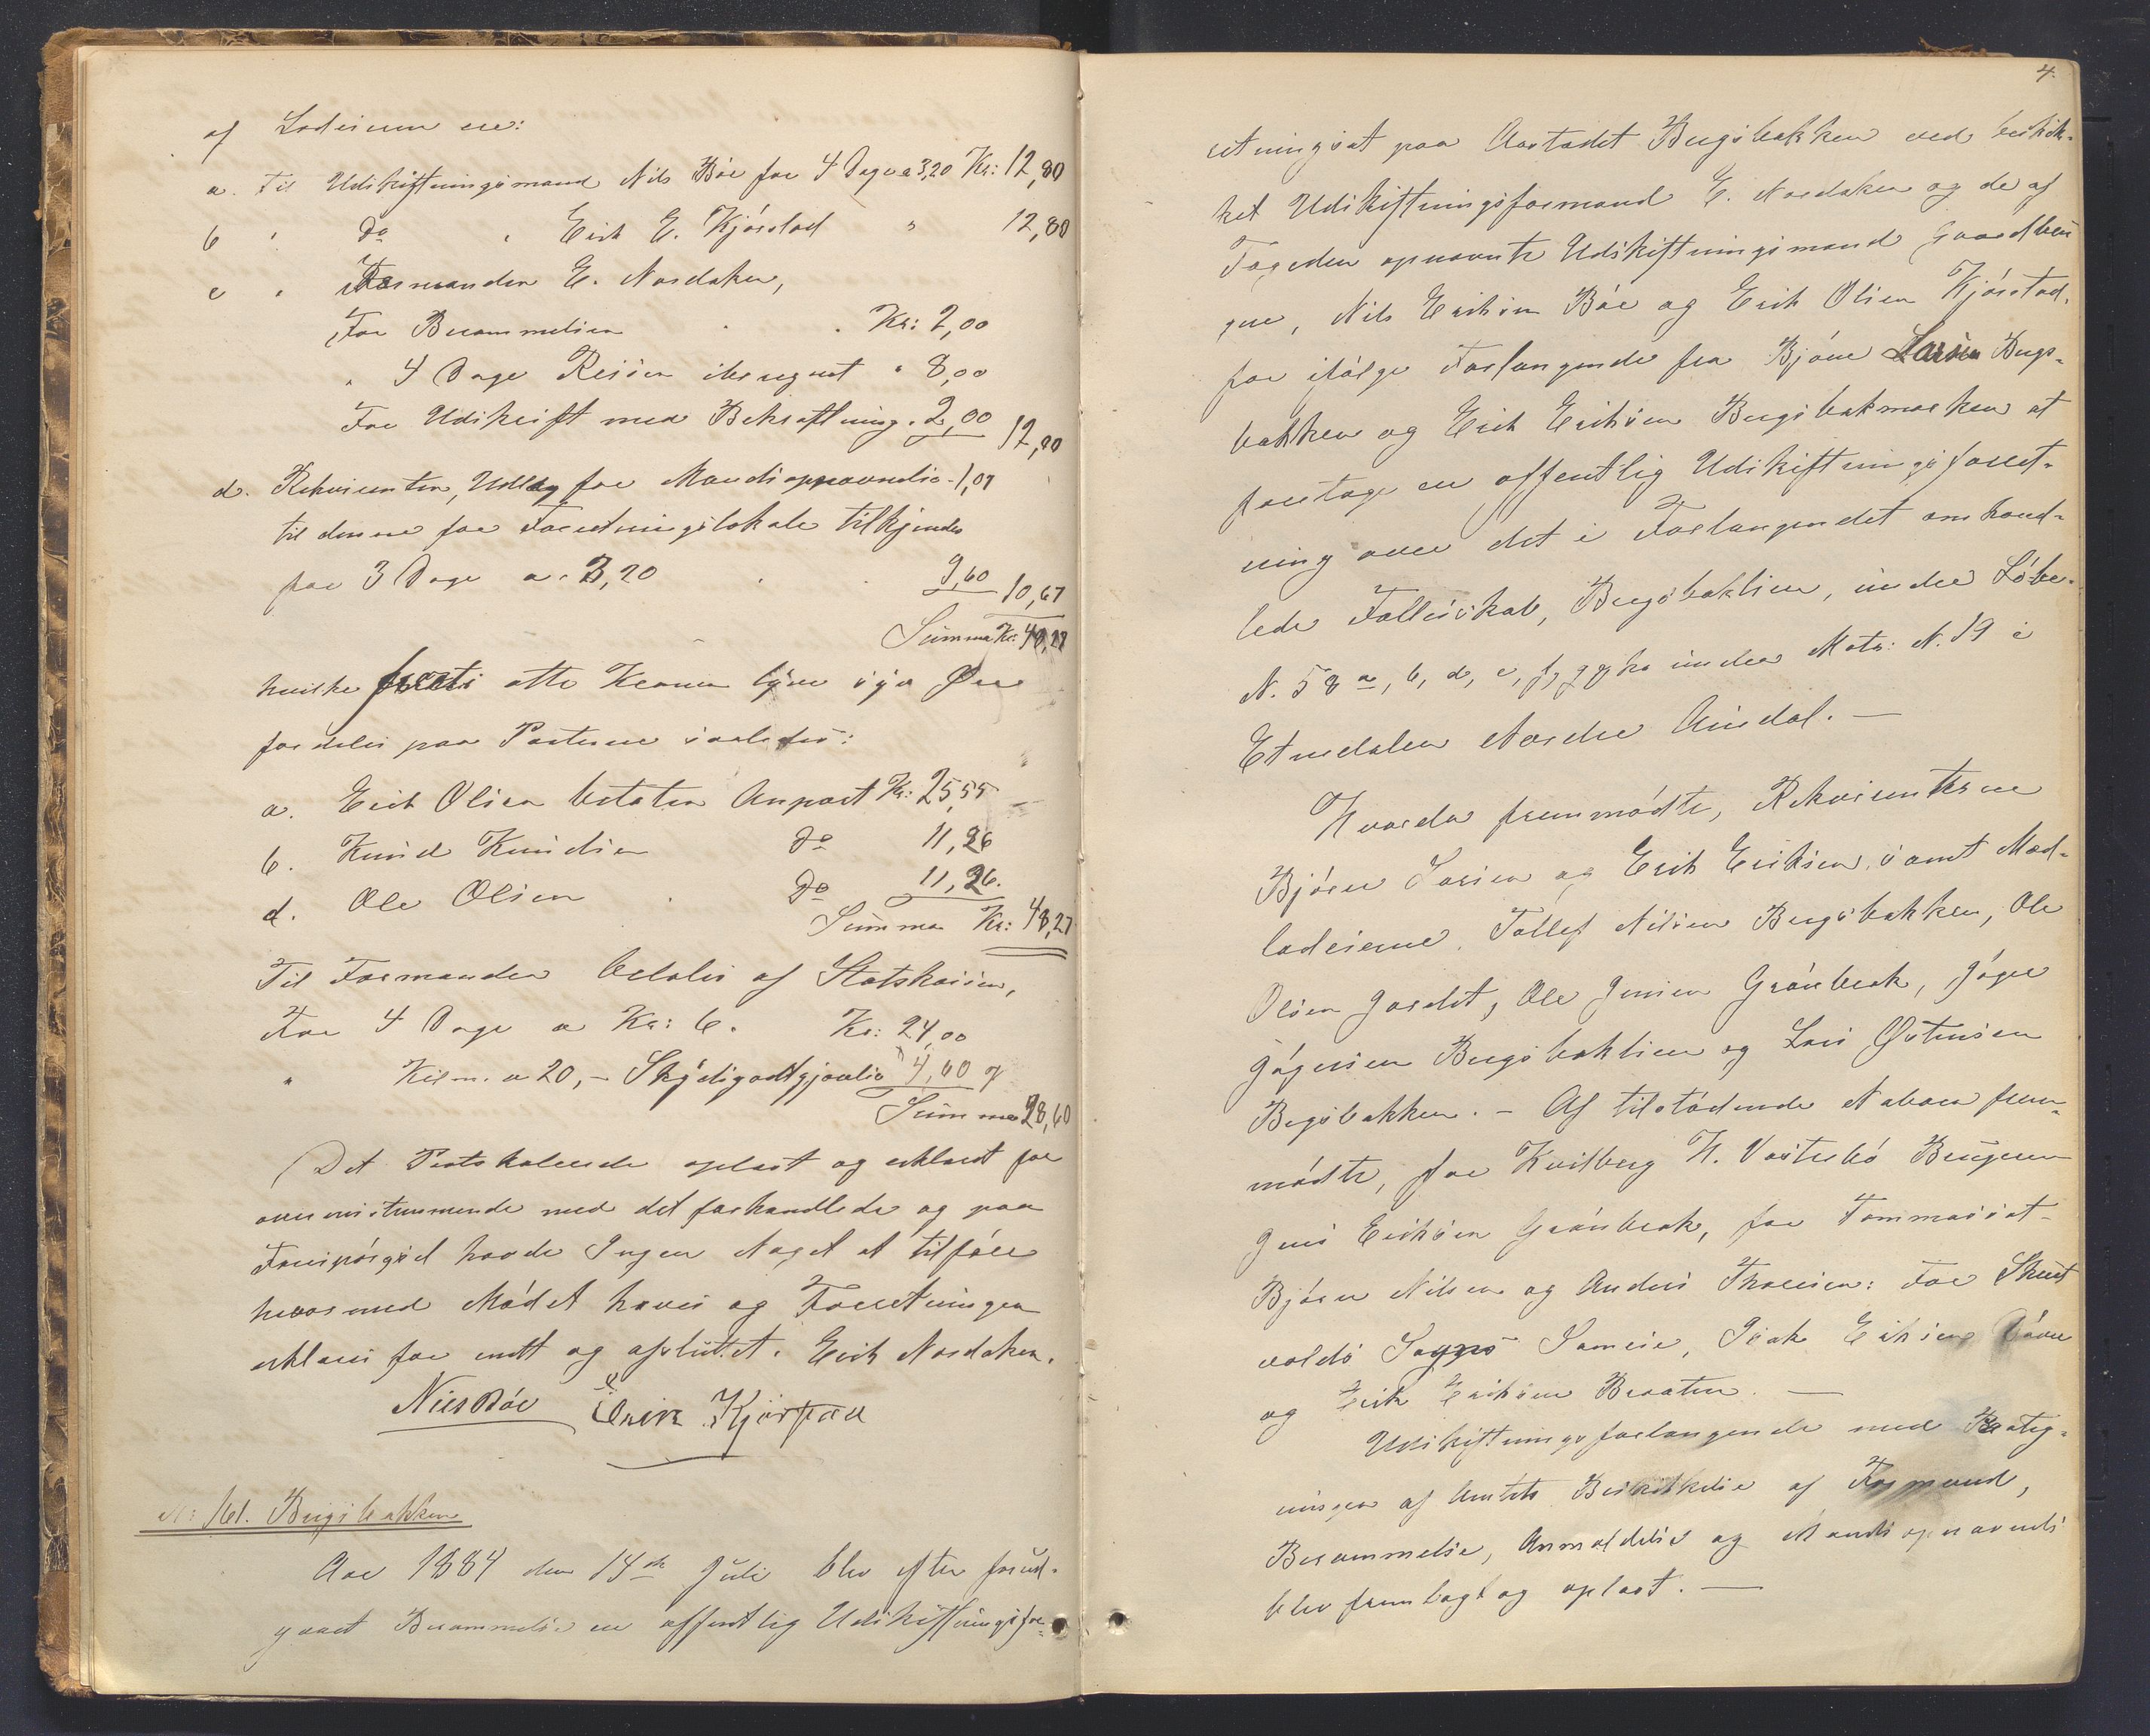 af Lodeierne ere:
a. Til Udskiftningsmand Nils Bøe for 4 Dage a 3,20 Kr: 12,80
b " Do " Erik E. Kjørstad " 12,80
c " Formanden E. Nordaker,
For Berammelsen . . Kr: 2,00
" 4 Dage Reisen iberegnet " 8,00
For Udskrift med Bekræftning . 2,00 12,00
d. Rekvirenten, Udlæg for Mandsopnævnelse . 1,07
til denne for Forretningslokale tilkjendes
for 3 Dage a. 3,20 . . 9,60 10,67
Summa Kr: 48,27
hvilke firti otte Kroner tyve syv Øre
fordeles paa Parterne saaledes:
a. Erik Olsen betaler Anpart Kr: 25,55
b. Knud Knudsen Do 11,36
d. Ole Olsen . Do 11,36.
Summa Kr: 48,27
Til Formanden betales af Statskassen,
For 4 Dage a Kr: 6. Kr: 24,00
" Kilm. a 20, – Skydsgodtgjørelse 4,60
Summa 28,60
Det Protokolerede oplæst og erklæret for
overensstemmende med det forhandlede og paa
Forespørgsel havde Ingen Noget at tilføre
hvormed Mødet hæves og Forretningen
erklæres for endt og afsluttet. Erik Nordaker.
Nils Bøe Erik Kjørstad
N: 161. Bergsbakken
Aar 1884 den 14de Juli blev efter forud-
gaaet Berammelse en offentlig Udskiftningsfor-
4.
retning sat paa Aastedet Bergsbakken ved beskik-
ket Udskiftningsformand E. Nordaker og de af
Fogeden opnævnte Udskiftningsmænd Gaardbru
gere, Nils Eriksen Bøe og Erik Olsen Kjørstad,
for ifølge Forlangende fra Bjørn Larsen Bergs-
bakken og Erik Eriksen Bergsbakmarken at
foretage en offentlig Udskiftningsforret-
ning over det i Forlangendet omhand-
lede Fællesskab, Bergsbaklien, under Løbe-
N. 58 a, b, d, e, f, g under Matr: N. 19 i
Etnedalen Nordre Aurdal. —
Hvorda fremmødte, Rekvirenterne
Bjørn Larsen og Erik Eriksen, samt Med-
lodeierne, Tollef Nilsen Bergsbakken, Ole
Olsen Jordet, Ole Jensen Grønbræk, Jøger
Jøgersen Bergsbaklien og Lars Østensen
Bergsbakken. – Af tilstødende Naboer frem-
mødte, for Kvilberg H. Vestrebø Brugeren
Jens Eriksen Grønbræk, for Tommasset
Bjørn Nilsen og Anders Thoresen: For Skut
volds Sogns Sameie, Isak Eriksen
og Erik Eriksen Braaten. —
Udskiftningsforlangende med Paateg-
ninger af Amtets Beskikkelse af Formand,
Berammelse, Anmeldelse og Mandsopnævnels
blev fremlagt og oplæst. —